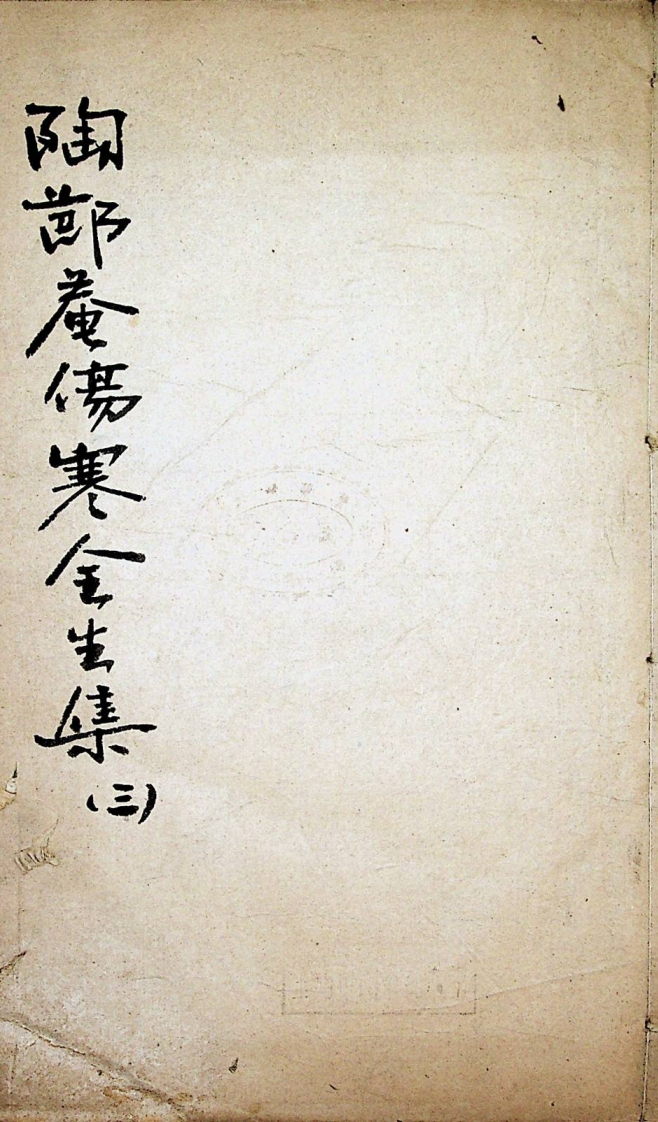 陶節菴傷寒全生集(三)